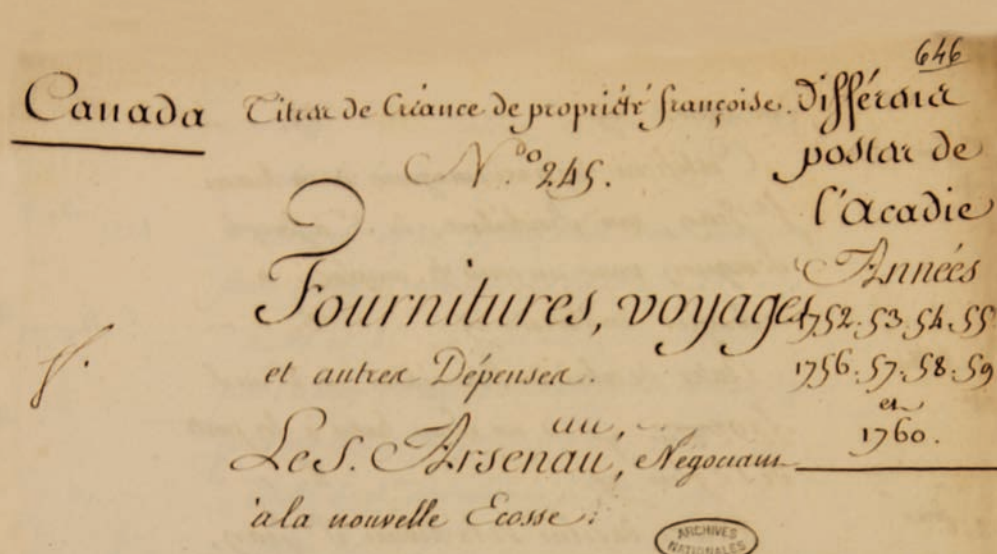 646
Canada
Titres de Créance de propriété françoise.
N.º 245.
Différens
postes de
l'Acadie
Années
1752. 53. 54. 55
1756. 57. 58. 59
et
1760.
Fournitures, voyages
et autres Dépenses.
Le S. Arsenau, Négociant
à la nouvelle Ecosse.
ARCHIVES
NATIONALES